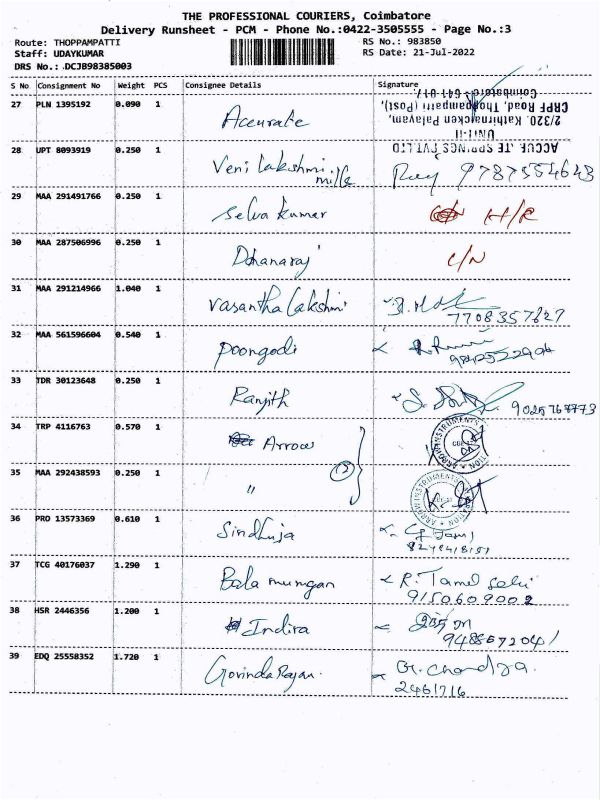 THE PROFESSIONAL COURIERS, Coimbatore
Delivery Runsheet - PCM - Phone No.:0422-3505555 - Page No.:3
Route: THOPPAMPATTI
RS No.: 983850
Staff: UDAYKUMAR
RS Date: 21-Jul-2022
DRS No.: DCJB98385003
S No Consignment No Weight PCS Consignee Details Signature
27 PLN 1395192 0.090 1 Accurate
ACCURATE SPRINGS PVT.LTD
UNIT-II
2/320. Kathirnaicken Palayam,
CRPF Road, Thoppampatti (Post),
Coimbatore - 641 017
28 UPT 8093919 0.250 1 Veni Lakshmi mills 9787554643
29 MAA 291491766 0.250 1 Selva kumar H/R
30 MAA 287506996 0.250 1 Dhanaraj C/N
31 MAA 291214966 1.040 1 Vasantha Lakshmi 7708357627
32 MAA 561596604 0.540 1 Poongodi
33 TDR 30123648 0.250 1 Ranjith
34 TRP 4116763 0.570 1 Arrow
35 MAA 292438593 0.250 1 " (2)
36 PRO 13573369 0.610 1 Sindhuja
37 TCG 40176037 1.290 1 Bala murugan R. Tamil Selvi
9150609002
38 HSR 2446356 1.200 1 Indira
39 EDQ 25558352 1.720 1 Govinda Rajan. G. Chandra.
2461716